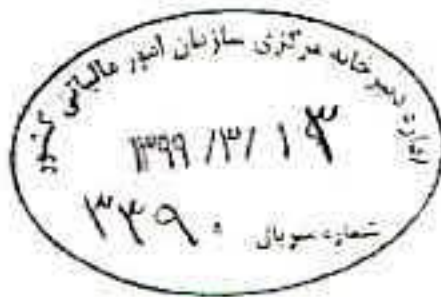 اداره دبیرخانه مرکزی سازمان امور مالیاتی کشور
۱۳۹۹/۳/۱۳
شماره سریال: ۳۳۹۰